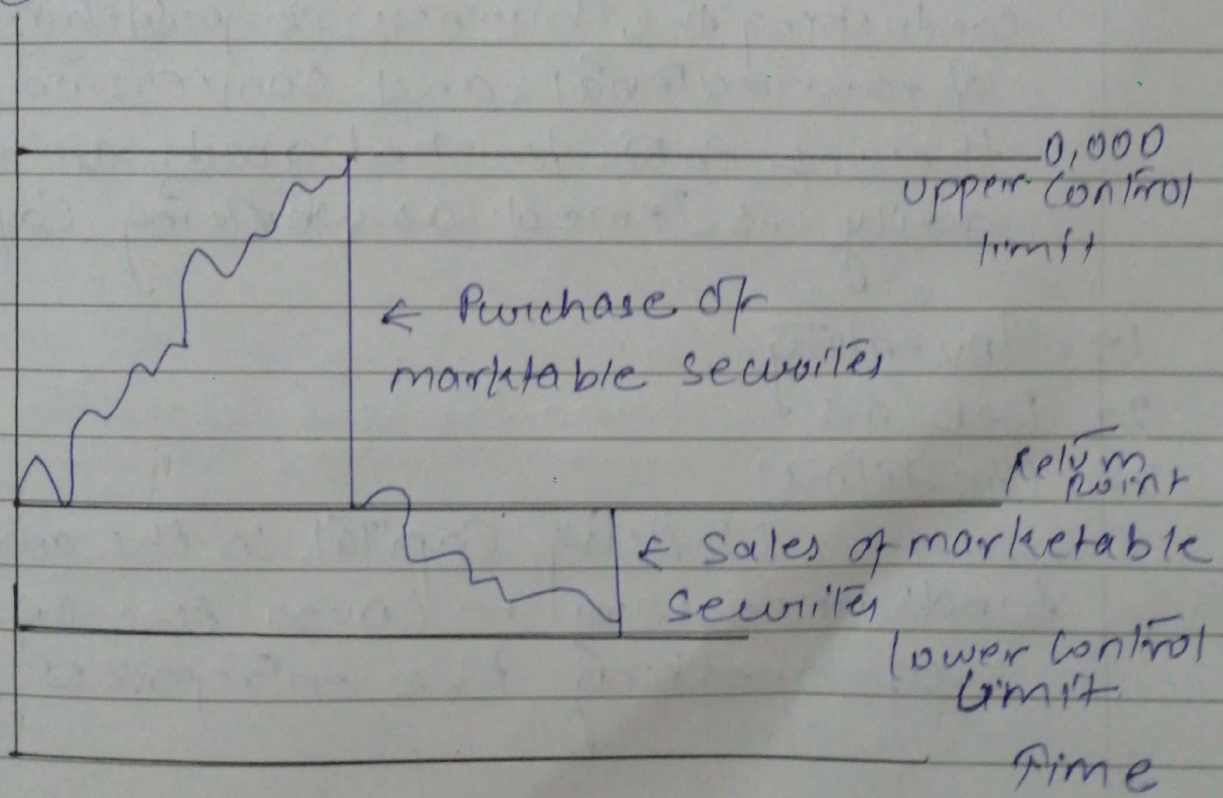 0,000
upper control
limit
← Purchase of
marktable securites
Return
point
← Sales of marketable
securites
lower control
limit
Time